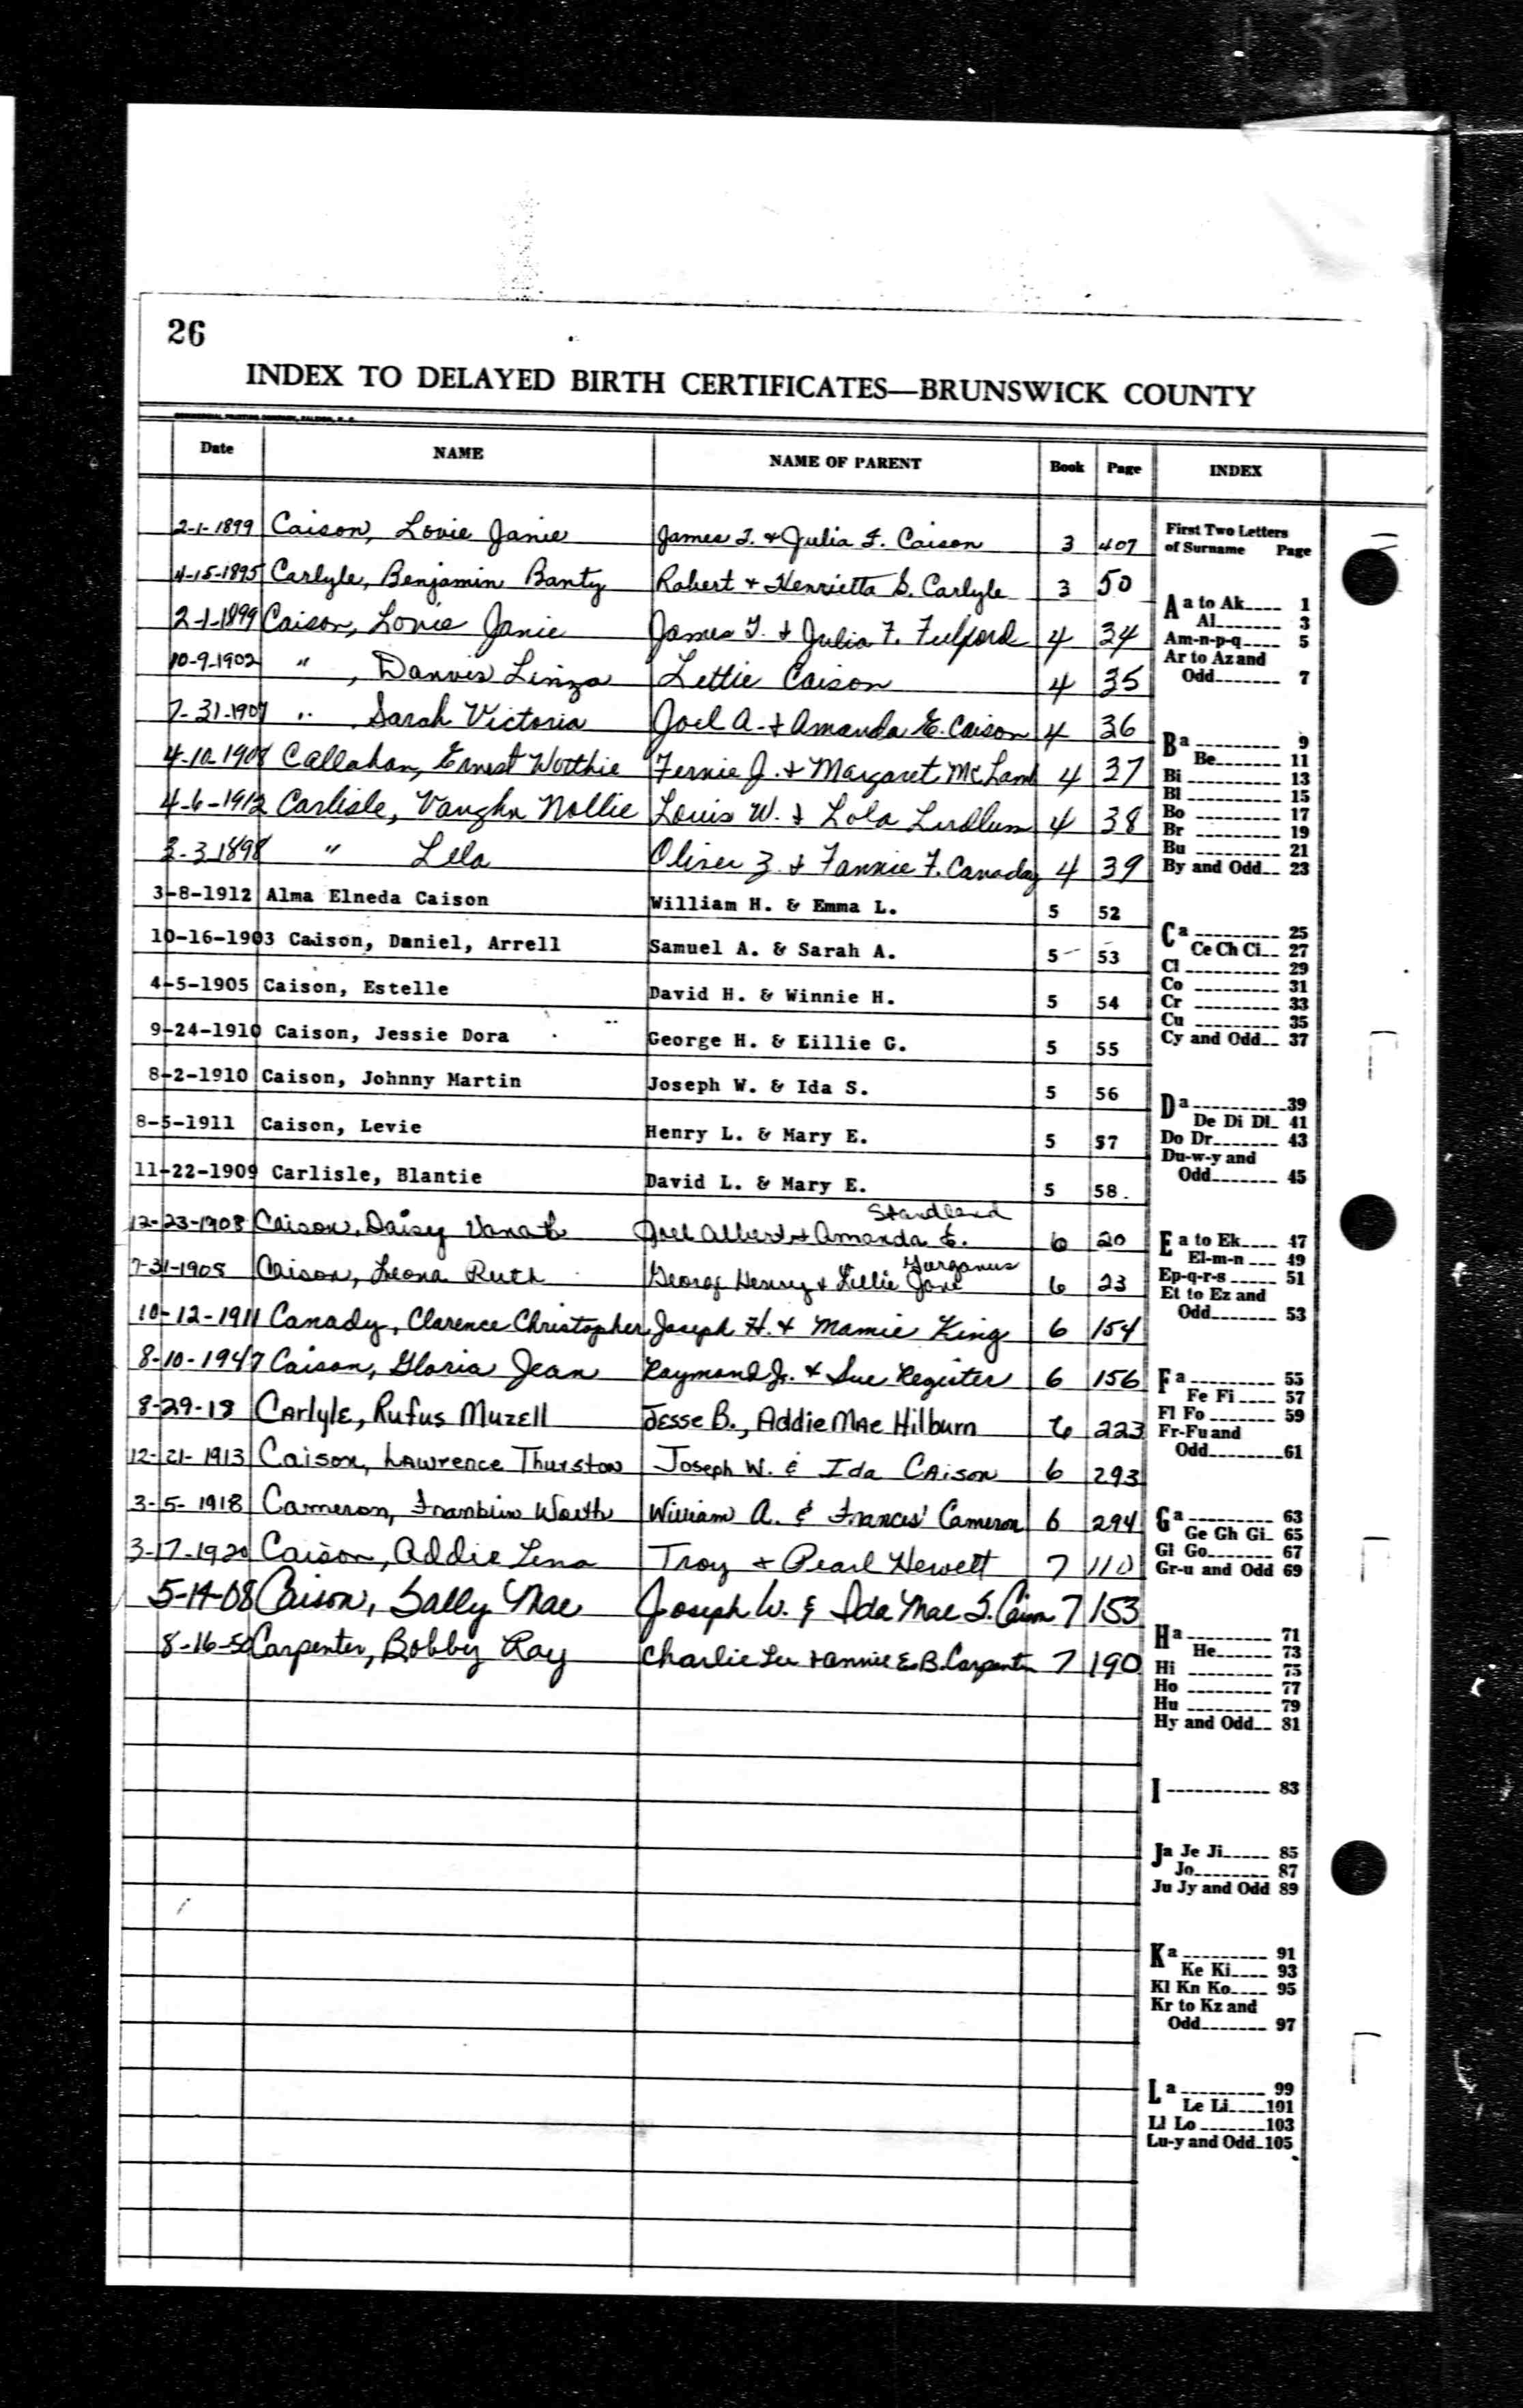 26
INDEX TO DELAYED BIRTH CERTIFICATES—BRUNSWICK COUNTY
Date NAME NAME OF PARENT Book Page INDEX
2-1-1899 Caison, Lovie Janie James T. & Julia F. Caison 3 407
4-15-1895 Carlyle, Benjamin Banty Robert & Henrietta S. Carlyle 3 50
2-1-1899 Caison, Lovie Janie James T. & Julia F. Fulford 4 34
10-9-1902 " , Danvis Linza Lettie Caison 4 35
7-31-1907 " Sarah Victoria Joel A. & Amanda E. Caison 4 36
4-10-1908 Callahan, Ernest Worthie Fernie J. & Margaret McLamb 4 37
4-6-1912 Carlisle, Vaughn Nollie Louis W. & Lola Ludlum 4 38
3-3-1898 " Lela Oliver Z. & Fannie F. Canaday 4 39
3-8-1912 Alma Elneda Caison William H. & Emma L. 5 52
10-16-1903 Caison, Daniel, Arrell Samuel A. & Sarah A. 5 53
4-5-1905 Caison, Estelle David H. & Winnie H. 5 54
9-24-1910 Caison, Jessie Dora George H. & Eillie G. 5 55
8-2-1910 Caison, Johnny Martin Joseph W. & Ida S. 5 56
8-5-1911 Caison, Levie Henry L. & Mary E. 5 57
11-22-1909 Carlisle, Blantie David L. & Mary E. 5 58.
Standland
12-23-1908 Caison, Daisy Joel Albert & Amanda E. 6 20
Gurganus
7-31-1908 Caison, Leona Ruth George Henry & Lillie Jane 6 23
10-12-1911 Canady, Clarence Christopher Joseph H. & Mamie King 6 154
8-10-1947 Caison, Gloria Jean Raymond Jr. & Sue Register 6 156
8-29-18 Carlyle, Rufus Muzell Jesse B., Addie Mae Hilburn 6 223
12-21-1913 Caison, Lawrence Thurston Joseph W. & Ida Caison 6 293
3-5-1918 Cameron, Franklin Worth William A. & Frances Cameron 6 294
3-17-1920 Caison, Addie Lena Troy & Pearl Hewett 7 110
5-14-08 Caison, Sally Mae Joseph W. & Ida Mae S. Caison 7 153
8-16-50 Carpenter, Bobby Ray Charlie Lee & Annie E.B. Carpenter 7 190
First Two Letters
of Surname Page
Aa to Ak---- 1
Al------- 3
Am-n-p-q---- 5
Ar to Az and
Odd------- 7
Ba --------- 9
Be------- 11
Bi ---------- 13
Bl ---------- 15
Bo --------- 17
Br --------- 19
Bu --------- 21
By and Odd-- 23
Ca --------- 25
Ce Ch Ci-- 27
Cl ---------- 29
Co --------- 31
Cr --------- 33
Cu --------- 35
Cy and Odd-- 37
Da----------39
De Di Dl- 41
Do Dr------- 43
Du-w-y and
Odd------- 45
Ea to Ek---- 47
El-m-n --- 49
Ep-q-r-s ----- 51
Et to Ez and
Odd------- 53
Fa --------- 55
Fe Fi---- 57
Fl Fo ------- 59
Fr-Fu and
Odd--------61
Ga --------- 63
Ge Gh Gi- 65
Gl Go------- 67
Gr-u and Odd 69
Ha --------- 71
He------ 73
Hi --------- 75
Ho --------- 77
Hu --------- 79
Hy and Odd-- 81
I ----------- 83
Ja Je Ji----- 85
Jo-------- 87
Ju Jy and Odd 89
Ka --------- 91
Ke Ki---- 93
Kl Kn Ko---- 95
Kr to Kz and
Odd------- 97
La --------- 99
Le Li----101
Ll Lo -------103
Lu-y and Odd-105